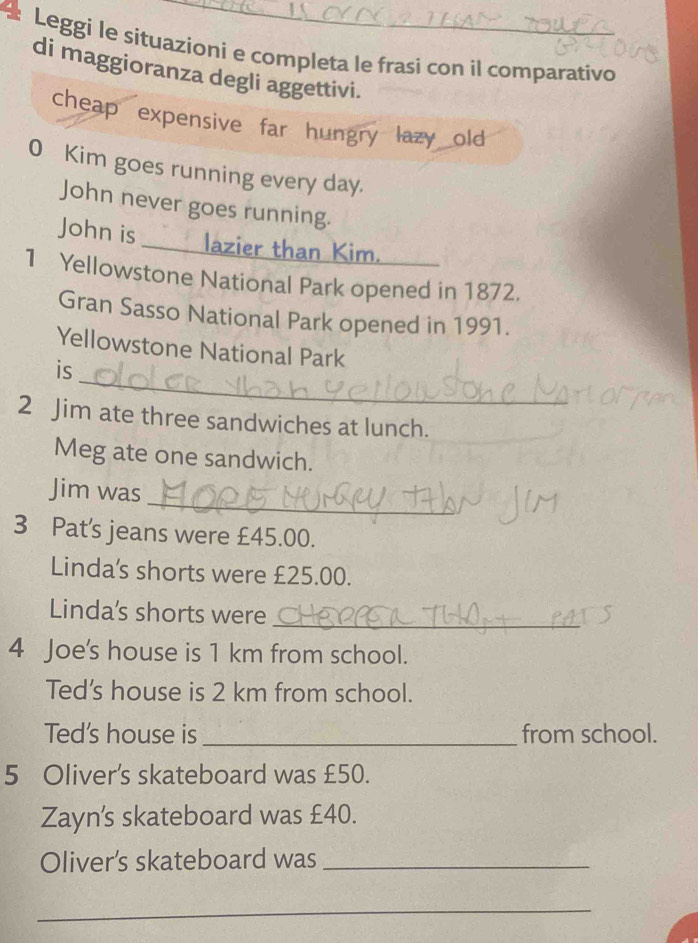 4 Leggi le situazioni e completa le frasi con il comparativo
di maggioranza degli aggettivi.
cheap expensive far hungry lazy old
0 Kim goes running every day.
John never goes running.
John is lazier than Kim.
1 Yellowstone National Park opened in 1872.
Gran Sasso National Park opened in 1991.
Yellowstone National Park
is older than yellowstone
2 Jim ate three sandwiches at lunch.
Meg ate one sandwich.
Jim was MORE HUrGRY THAN JIM
3 Pat's jeans were £45.00.
Linda's shorts were £25.00.
Linda's shorts were
4 Joe's house is 1 km from school.
Ted's house is 2 km from school.
Ted's house is from school.
5 Oliver's skateboard was £50.
Zayn's skateboard was £40.
Oliver's skateboard was